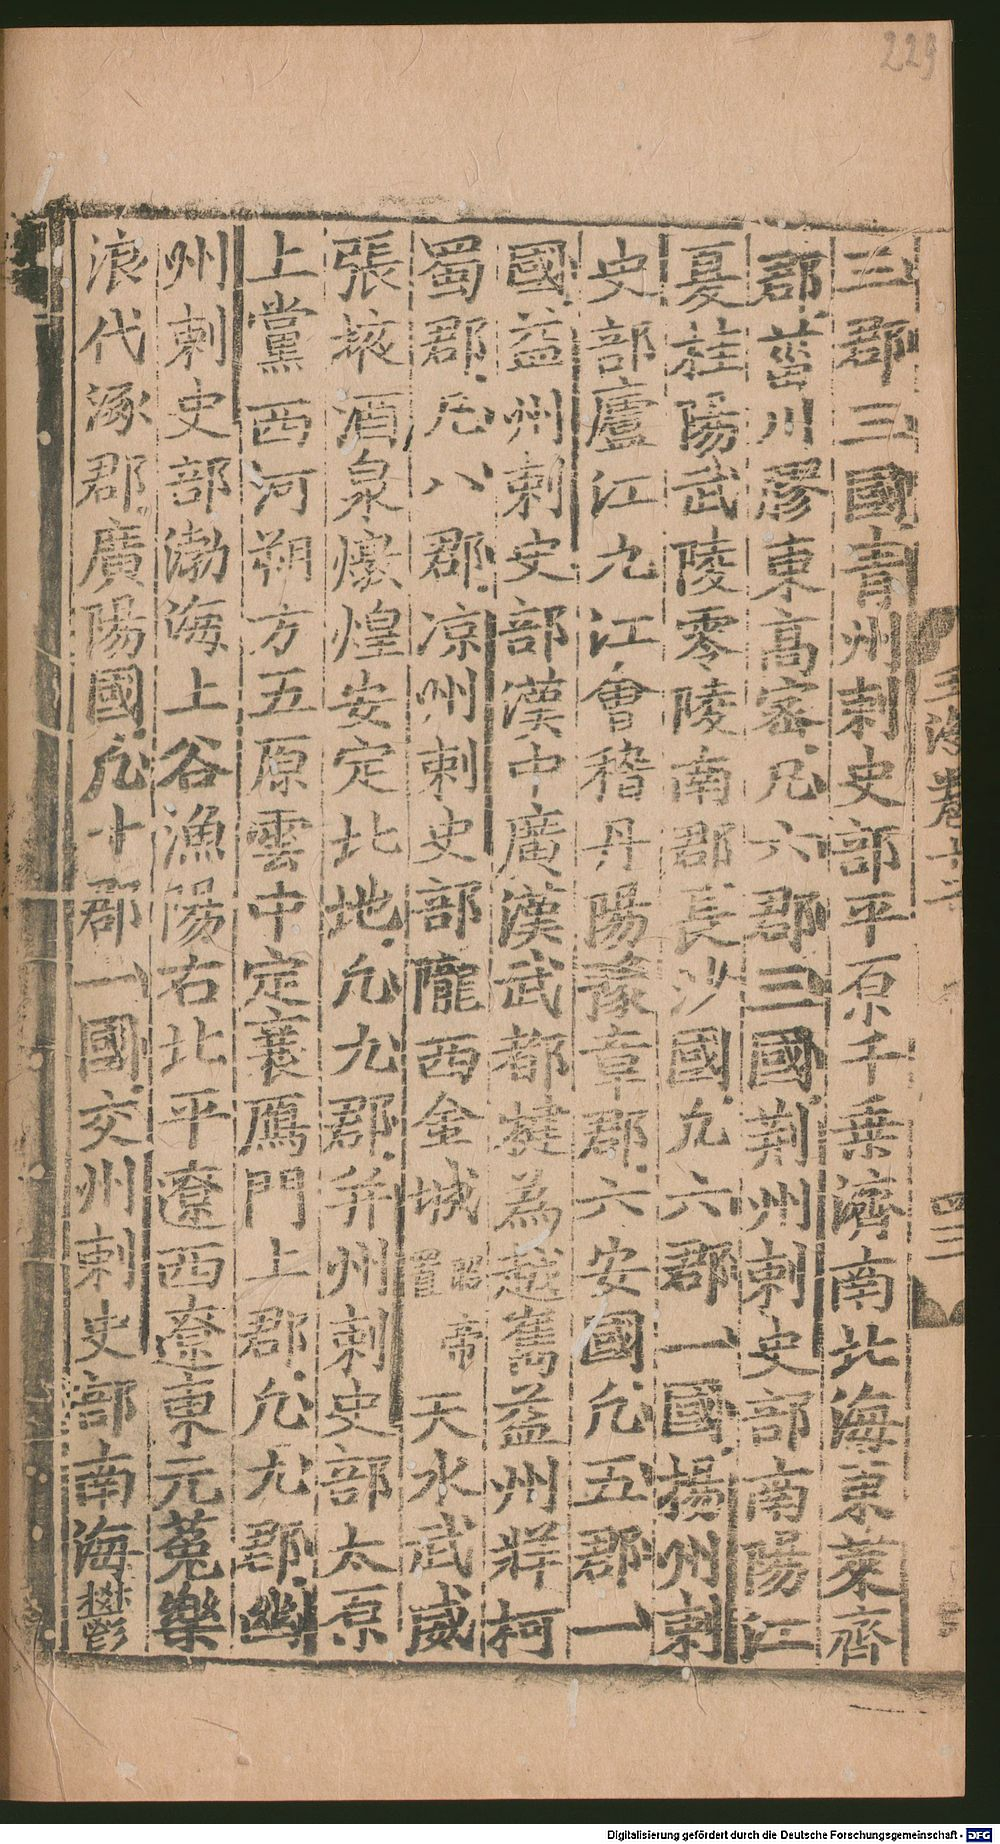 229
三郡三國青州刺史部平原千乗濟南北海東萊齊
郡菑川膠東高密凡六郡三國荆州刺史部南陽江
夏桂陽武陵零陵南郡長沙國凡六郡一國揚州刺
史部廬江九江會稽丹陽豫章郡六安國凡五郡一
國益州刺史部漢中廣漢武都犍為越嶲益州牂柯
蜀郡凡八郡凉州刺史部隴西金城昭帝置天水武威
張掖酒泉燉煌安定北地凡九郡并州刺史部太原
上黨西河朔方五原雲中定襄鴈門上郡凡九郡幽
州刺史部渤海上谷漁陽右北平遼西遼東元菟樂
浪代涿郡廣陽國凡十郡一國交州刺史部南海鬱
玉海卷
四三
Digitalisierung gefördert durch die Deutsche Forschungsgemeinschaft - DFG